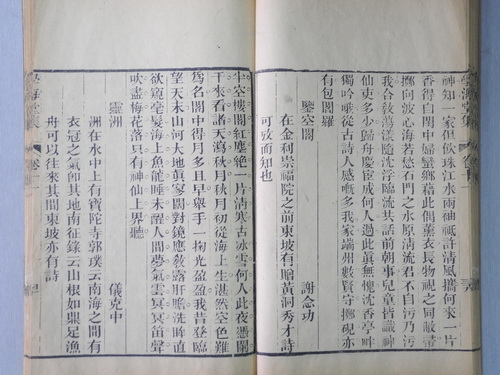 神知一家但飲珠江水兩袖祇許清風攜何來一片
香得白閨中婦蠻鄉藉此俱薰衣長物視之同敝帚
擲向波心海若愁石門之水原清流君不自污乃污
我合教萬漢隨沈浮臨流共話前朝事兒童皆識神
仙吏多少歸舟慶宦成何人過此眞無愧沈香亭畔
獨吟乘從古詩人感嘅多我家端州數賢守擲硯亦
有包閻羅
鑒空閣 謝念功
在金利崇福院之前東坡有贈黃洞秀才詩
可攷而知也
半空樓閣紅塵絶一片清寒古冰雪何人此夜憑闌
干來看諸天瀉秋月秋月初從海上生湛然空色難
爲名閣中得月多且早舉手一掬光盈盈我昔登臨
望天末山河大地眞家闊對鏡應教露肝膽洗眸直
欲窺毫髮海上魚龍睡未醒人間夢氣雲冥冥笛聲
吹盡梅花落只有神仙上界聽
靈洲 儀克中
洲在水中上有寶陀寺郭璞云南海之間有
衣冠之氣卽其地南征錄云山根如鼎足漁
舟可以往來其間東坡亦有詩
學海堂集
卷十一